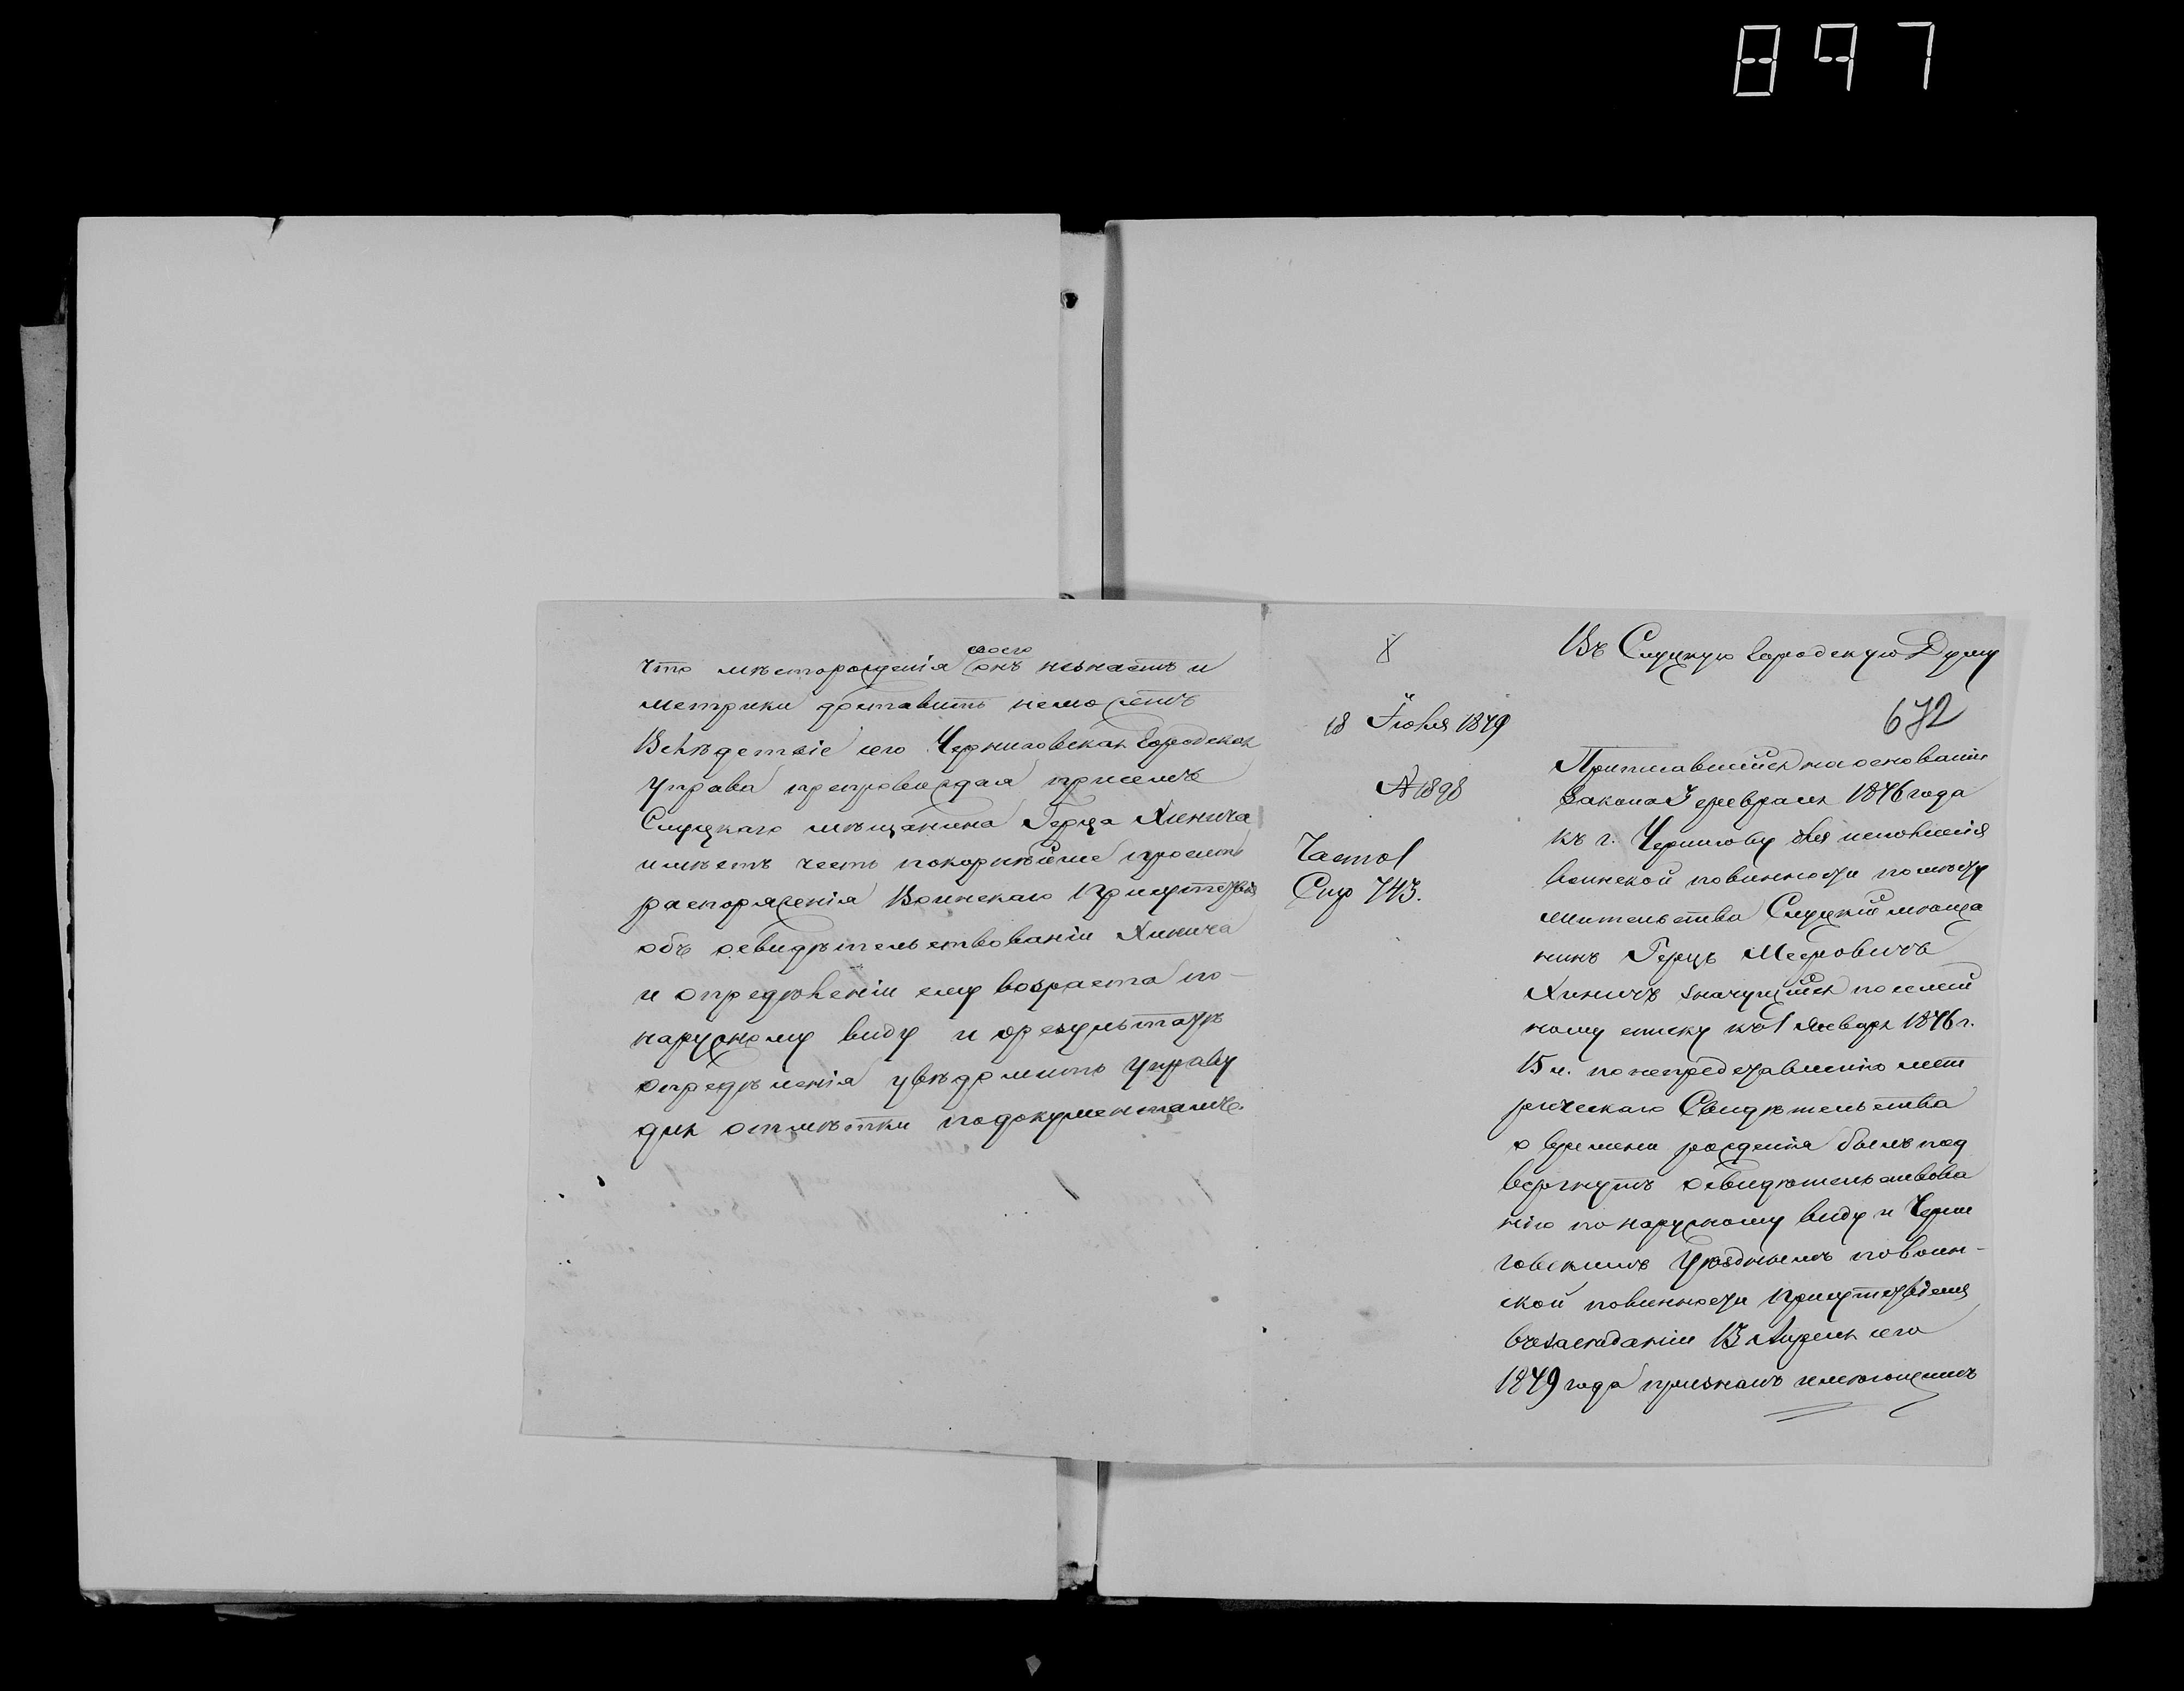 897
что мѣсторожденія своего онъ незнаетъ и
метрики доставить неможетъ
Вслѣдствіе сего Черниговская Городская
Управа препровождая присемъ
Слуцкаго мѣщанина Герца Хинича
имѣетъ честь покорнѣйше просить
распоряженія Воинскаго Присутствія
объ освидѣтельствованіи Хинича
и опредѣленіи ему возраста по-
наружному виду и орезультатѣ
опредѣленія увѣдомить Управу
для отмѣтки подокументамъ.
18 Іюня 1879
№ 1898
Часто1
Въ Слуцкую Городскую Думу
672
Приписавшійся наоснованіи
Закона 3 февраля 1876 года
къ г. Чернигову для исполненія
воинской повинности помѣсту
жительства Слуцкій мѣща
нинъ Герцъ Мееровичъ
Хиничъ значущійся посемей
ному списку къ 1 Января 1876 г.
15 л. понепредставленію мет
рическаго Свидѣтельства
о времени рожденія былъ под
вергнутъ освидѣтельствова
нію понаружному виду и Черни
говскимъ Уѣзднымъ повоин-
ской повинности Присутствіемъ
възасѣданіи 13 Апрѣля сего
1879 года признанъ имѣющимъ